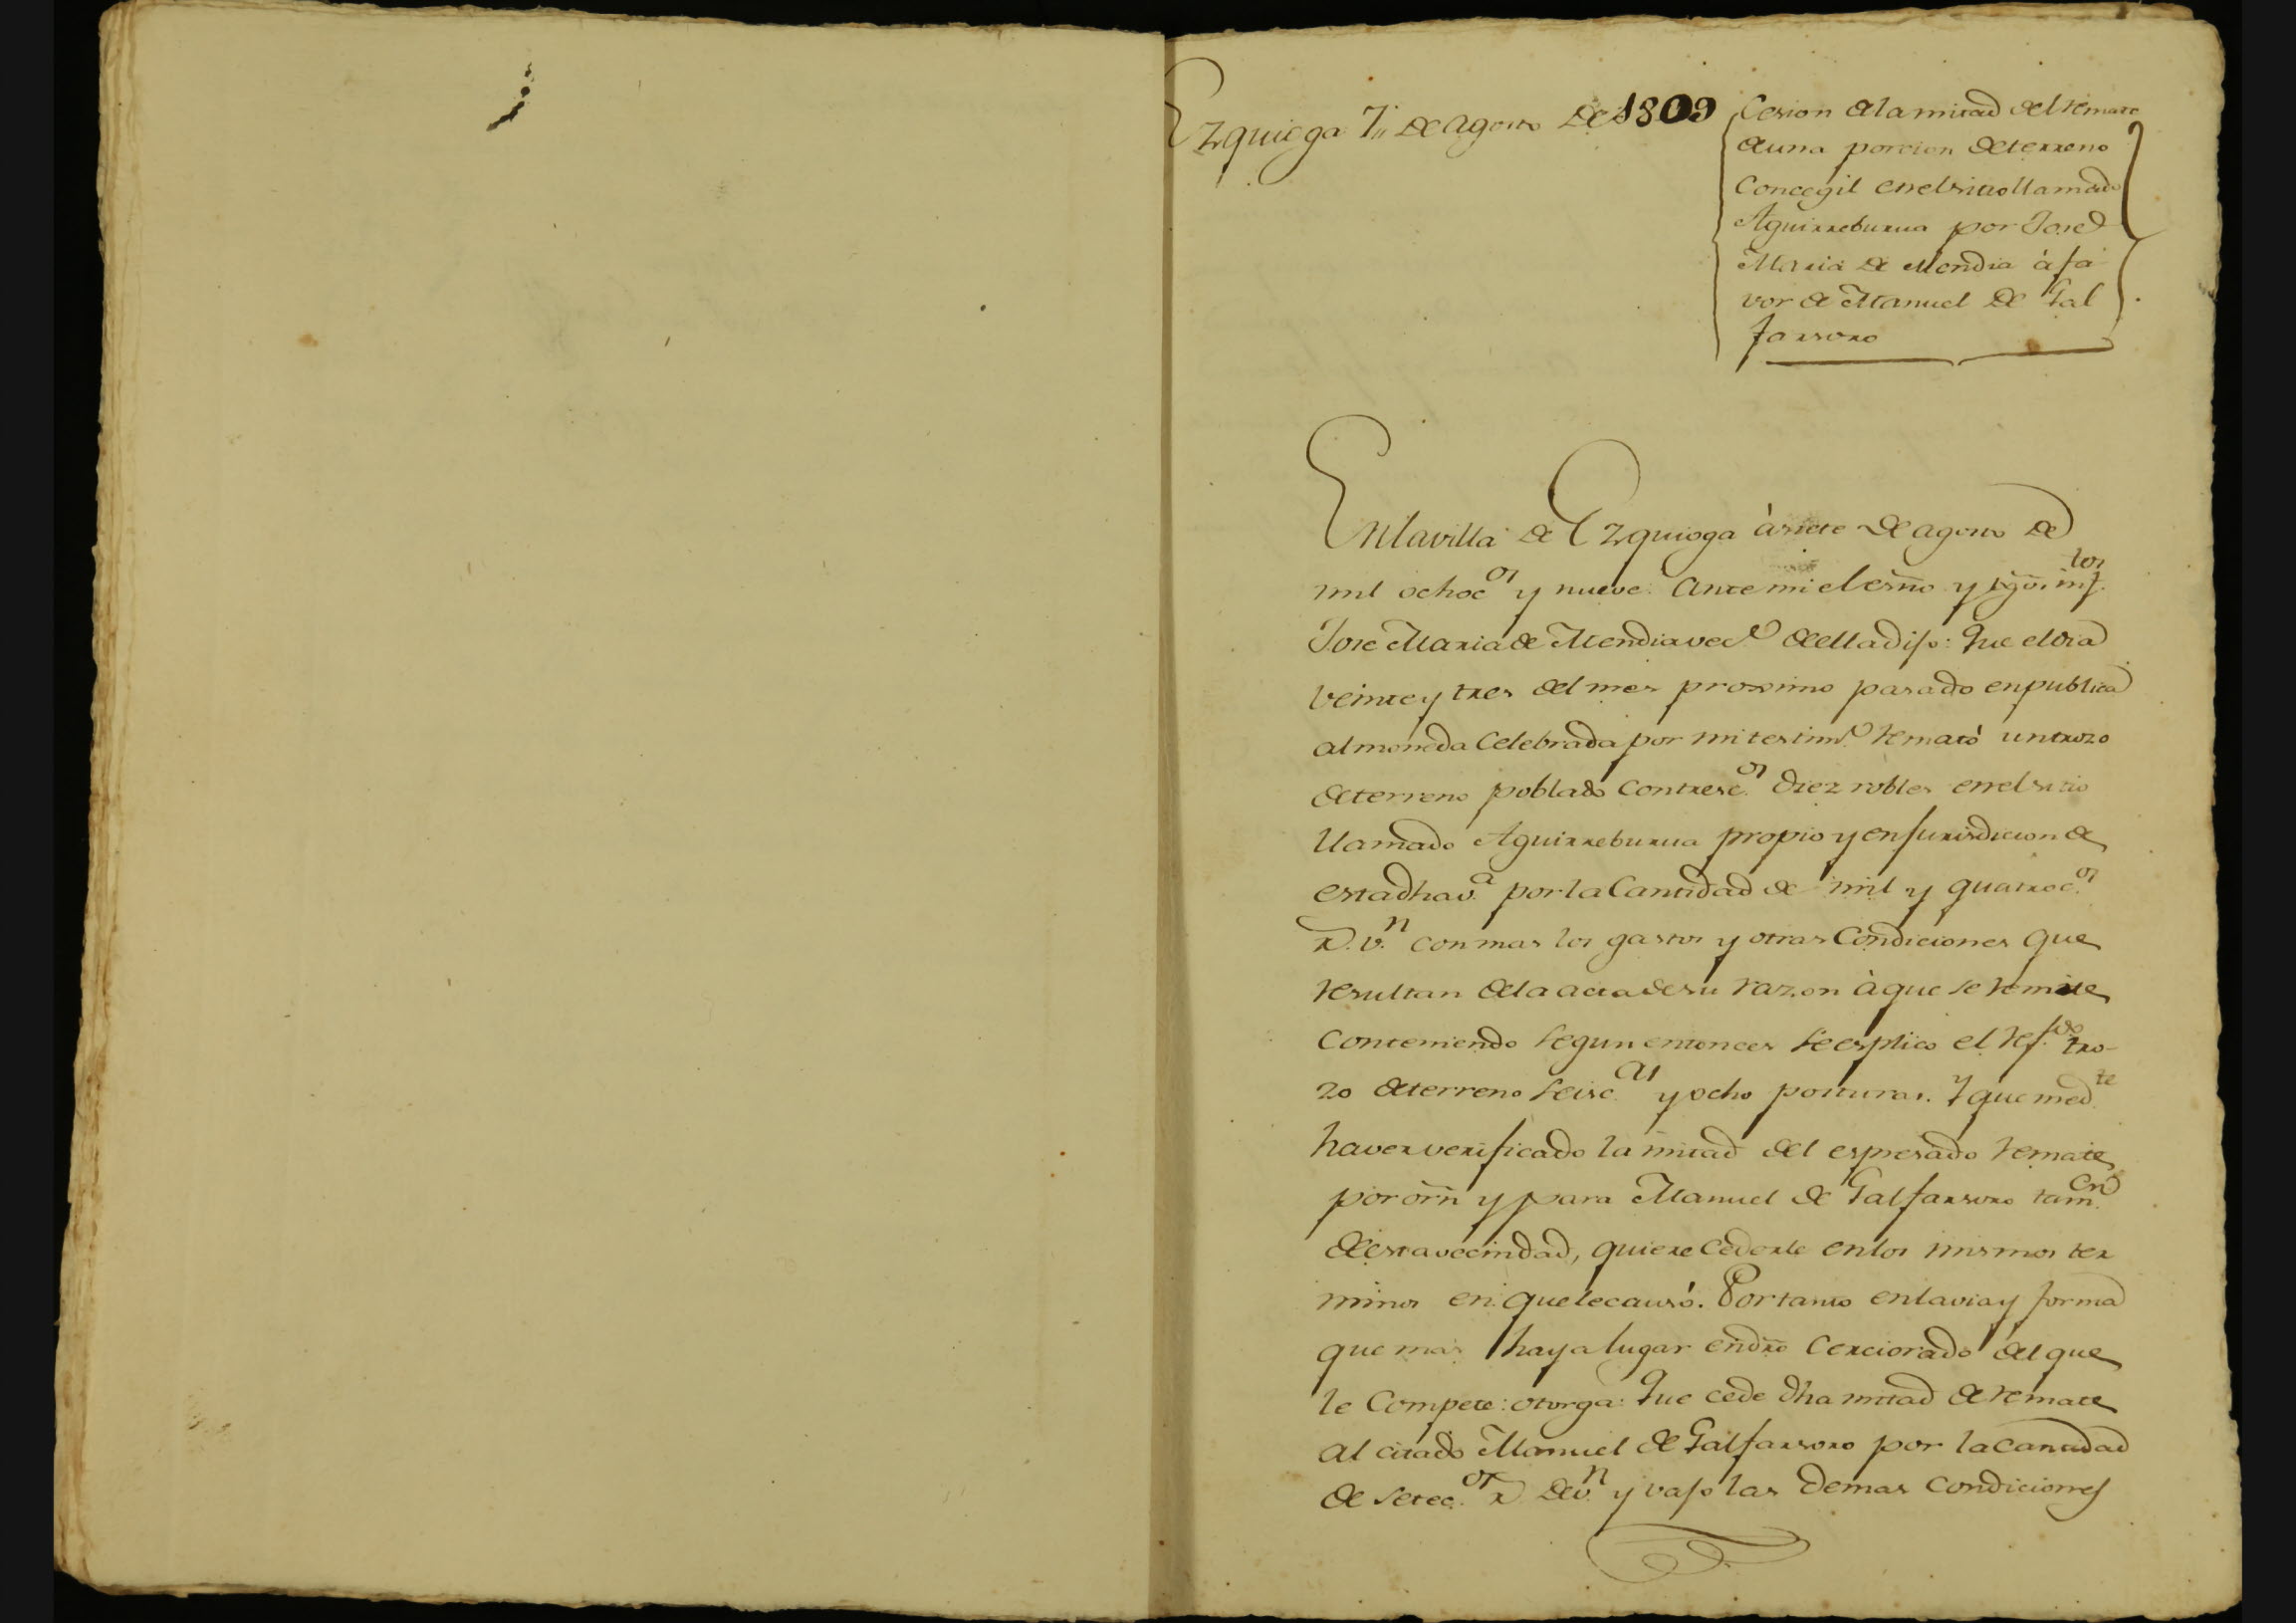 Ezquioga 7,, de agosto de 1809
Cesion de la mitad del remate
de una porcion de terreno
Concegil en el sitio llamado
Aguirreburua por José
Maria de Mendia à fa
vor de Manuel de Gal
farsoro
En la villa de Ezquioga à siete de agosto de
mil ochoc.os y nueve. Ante mi el esño y tgõs inf.tos
Jose Maria de Mendia vec.o de ella dijo: Que el dia
veinte y tres del mes proximo pasado en publica
almoneda Celebrada por mi testim.o remató un trozo
de terreno poblado con tresc.os diez robles en el sitio
llamado Aguirreburua propio y en jurisdicion de
esta dha v.a por la Cantidad de mil y quatroc.os
r.s v.n con mas los gastos y otras Condiciones que
resultan de la acta de su razon à que se remite
conteniendo segun entonces se esplico el ref.do tro-
zo de terreno seisc.as y ocho posturas. Y que med.te
haver verificado la mitad del espresado remate
por orñ y para Manuel de Galfarsoro tam.en
de esta vecindad, quiere cederle en los mismos ter
minos en que le causó. Por tanto en la via y forma
que mas haya lugar en dro cerciorado del que
le Compete: otorga: Que cede dha mitad de remate
al citado Manuel de Galfarsoro por la cantidad
de setec.os r.s de v.n y vajo las demas condiciones